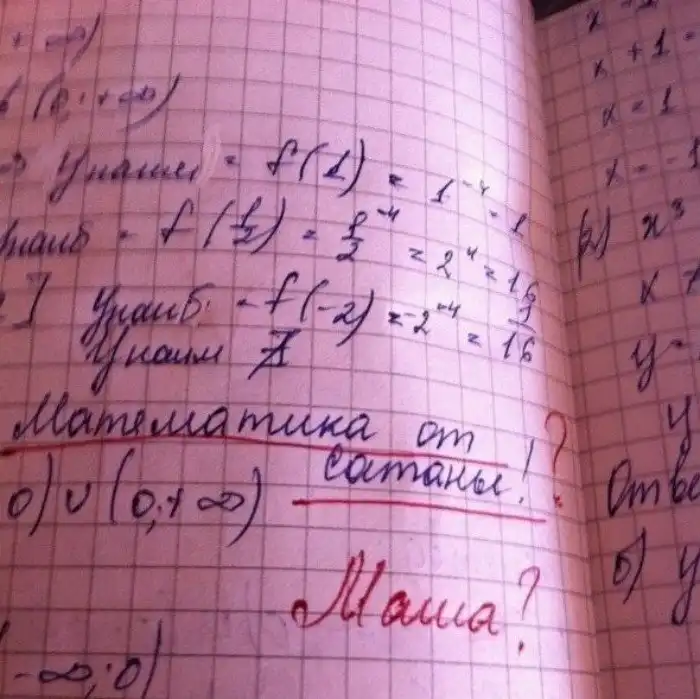 + ∞)
(0; +∞)
⇒ Yнаим = f(1) = 1⁻⁴ = 1
Yнаиб = f(1/2) = 1/2⁻⁴ = 2⁴ = 16
] Yнаиб = f(-2) = -2⁻⁴ = 1/16
Yнаим
Математика от
сатаны! ?
0) ∪ (0; +∞)
Маша?
-∞; 0)
x + 1 =
x = 1
x = -1
x³
y =
y
Отве
б) y